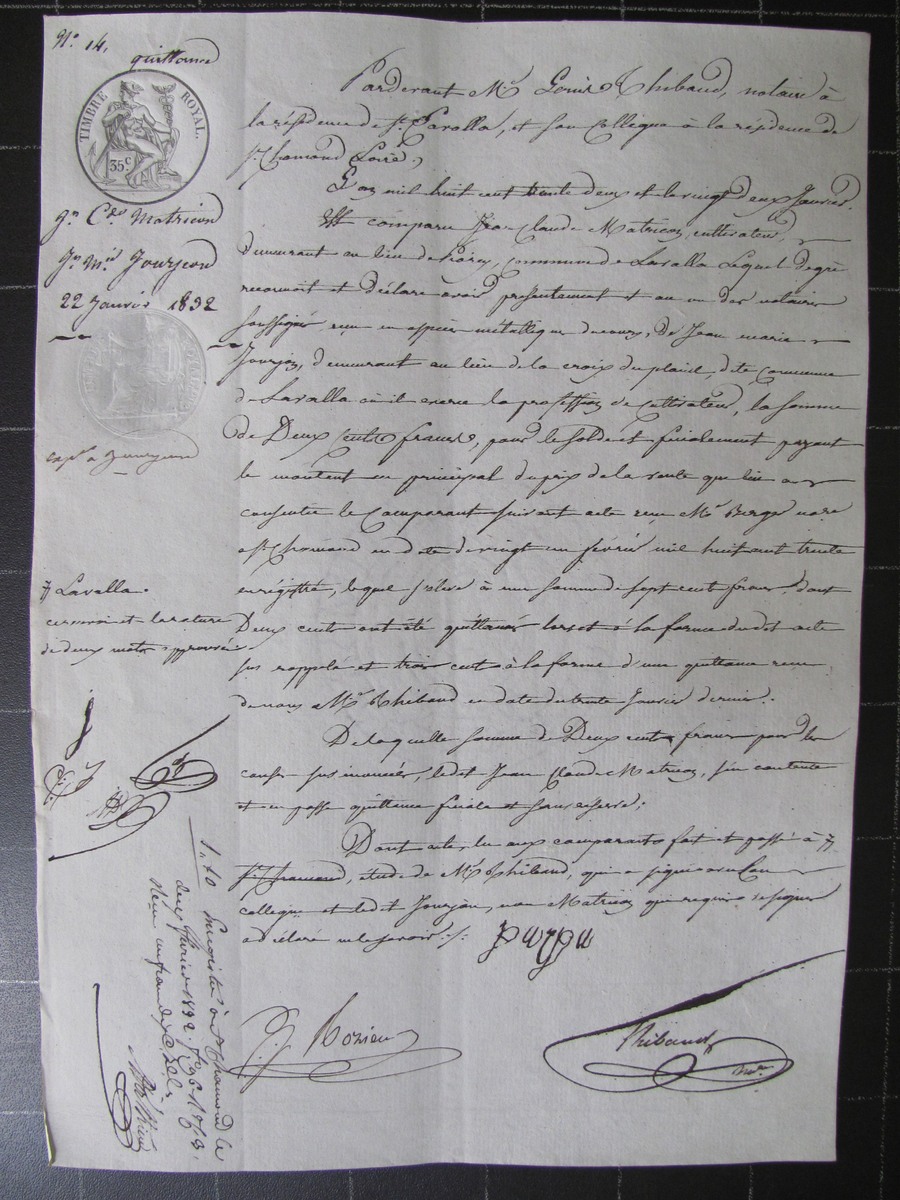 N° 14.
quittance
TIMBRE ROYAL.
35c
Jn Cde Matricon
Jn Mie Jourjeon
22 Janvier 1832
Pardevant Me Louis Thibaud, notaire à
la résidence de St Lavalla, et son Collègue à la résidence de
St Chamond Loire,
L'an mil huit cent trente deux et le vingt deux Janvier
Est comparu Jean Claude Matricon, cultivateur,
demeurant au lieu de commune de Lavalla Lequel de gré
reconnoit et déclare avoir présentement et au vu des notaires
soussignés reçu en espèces métalliques du cours, de Jean marie
Jourjon, demeurant au lieu de la croix du plaid, dite commune
de Lavalla où il exerce la profession de Cultivateur, la somme
de Deux cents francs, pour le solde et finalement payant
le montant en principal du prix de la vente que lui a
consentie le Comparant suivant acte reçu Me Berge nore
a St Chamond en date du vingt un février mil huit cent trente
enrégistré, lequel s'élève à une somme de sept cent francs, dont
Deux cents ont été quittancés lors et à la forme du dit acte
sus rappelé et trois cent à la forme d'une quittance reçue
de nous Me Thibaud en date du trente Janvier dernier.
De laquelle somme de Deux cents francs pour les
causes sus énoncées, ledit Jean Claude Matricon, s'en contente
et en passe quittance finale et sans réserve;
Dont acte, lu aux comparants fait et passé à
St Chamond, étude de Me Thibaud, qui a signé avec son
collegue et ledit Jourjon, non Matricon qui requis de signer
a déclaré ne le savoir ./.
Lavalla
ce renvoi et la rature
de deux mots approuvés
1,,10
Enregistré à St Chamond le
deux février 1832. fo 96
Reçu un franc dix c.
Thibaud
nre